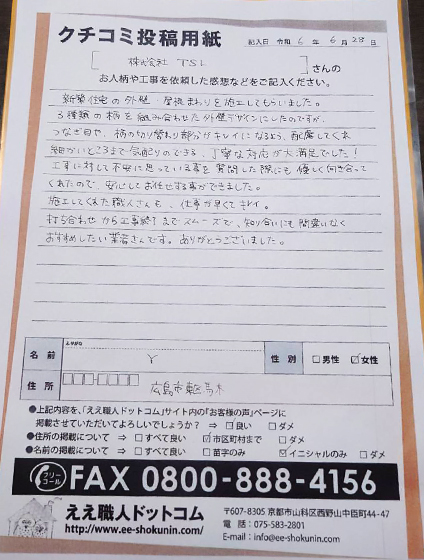 クチコミ投稿用紙
記入日 令和 6 年 6 月 28 日
[ 株式会社 TSL ] さんの
お人柄や工事を依頼した感想などをご記入ください。
新築住宅の外壁・屋根まわりを施工してもらいました。
3種類の柄を組み合わせた外壁デザインにしたのですが、
つなぎ目や、柄の切り替わり部分がキレイになるよう、配慮してくれ
細かいところまで気配りのできる、丁寧な対応が大満足でした!
工事に対して不安に思っている事を質問した際にも優しく向き合って
くれたので、安心してお任せする事ができました。
施工してくれた職人さんも、仕事が早くてキレイ。
打ち合わせから工事終了までスムーズで、知り合いにも間違いなく
おすすめしたい業者さんです。ありがとうございました。
ふりがな
名前 Y 性別 □男性 ☑女性
住所 広島市東区馬木
●上記内容を、「ええ職人ドットコム」サイト内の「お客様の声」ページに
掲載させていただいてよろしいでしょうか? ⇒ ☑良い □ダメ
●住所の掲載について ⇒ □すべて良い ☑市区町村まで □ダメ
●名前の掲載について ⇒ □すべて良い □苗字のみ ☑イニシャルのみ □ダメ
フリーコール FAX 0800-888-4156
ええ職人ドットコム
http://www.ee-shokunin.com/
〒607-8305 京都市山科区西野山中臣町44-47
電話:075-583-2801
E-mail:info@ee-shokunin.com